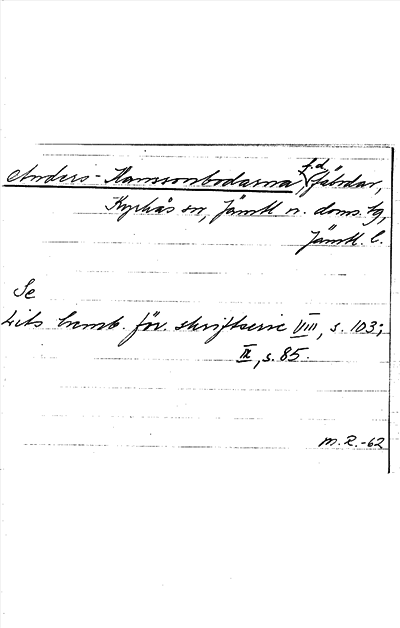 Anders-Hanssonbodarna (f.d. fäbodar,
Kyrkås sn, Jämtl. n. doms. tg,
Jämtl. l.
Se
Lits hemb. för. skriftserie VIII, s. 103;
IX, s. 85.
M.R.-62